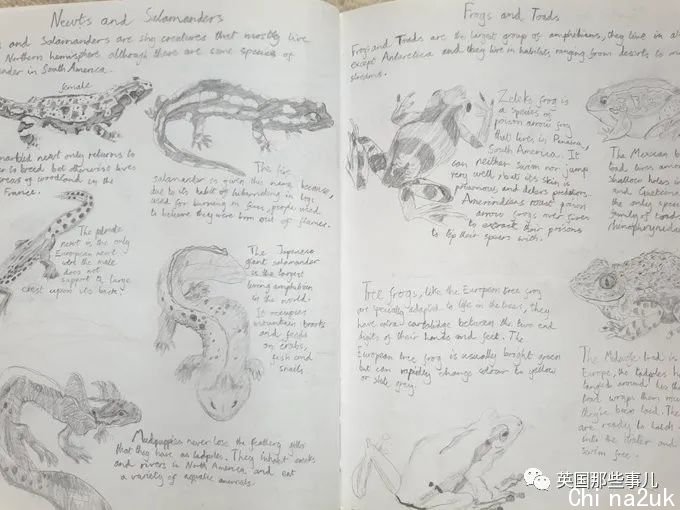 Newts and Salamanders
and Salamanders are shy creatures that mostly live
Northern hemisphere although there are some species of
in South America.
female
newt only returns to
to breed but otherwise lives
areas of woodland in the
France.
The fire
salamander is given this name because,
due to its habit of hibernating in logs
used for burning in fires, people used
to believe they were born out of flames.
The
newt is the only
European newt
the male
does not
support a large
crest upon its back.
The Japanese
giant salamander
is the largest
living amphibian
in the world.
It occupies
mountain brooks
and feeds
on crabs,
fish and
snails
Mudpuppies never lose the feathery gills
that they have as tadpoles. They inhabit creeks
and rivers in North America and eat
a variety of aquatic animals.
Frogs and Toads
Frogs and Toads are the largest group of amphibians, they live in
except Antarctica and they live in habitats, ranging from deserts to
streams.
frog is
a species of
poison arrow frog
that lives in Panama,
South America. It
can neither swim nor jump
very well, but its skin is
poisonous and deters predators.
Amerindians roast poison
arrow frogs over fires
to extract their poisons
to tip their spears with.
The Mexican
toad lives
shallow holes in
and
the only species
family of toads
Tree frogs, like the European tree frog
are specially adapted to life in the trees, they
have extra cartilage between the two end
digits of their hands and feet. The
European tree frog is usually bright green
but can rapidly change colour to yellow
or slate grey.
The Midwife toad is
Europe, the tadpoles
around his
toad wraps them
are ready to hatch
into the water and
swim free.
英国那些事儿
Chi na2uk